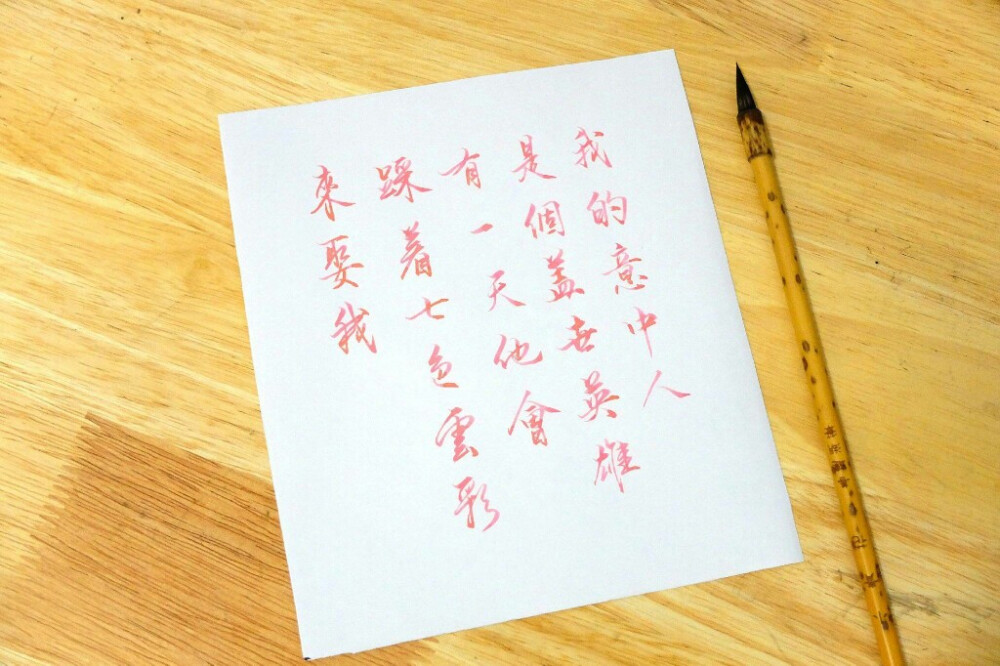 我的意中人
是個盖世英雄
有一天他會
踩着七色雲彩
來娶我